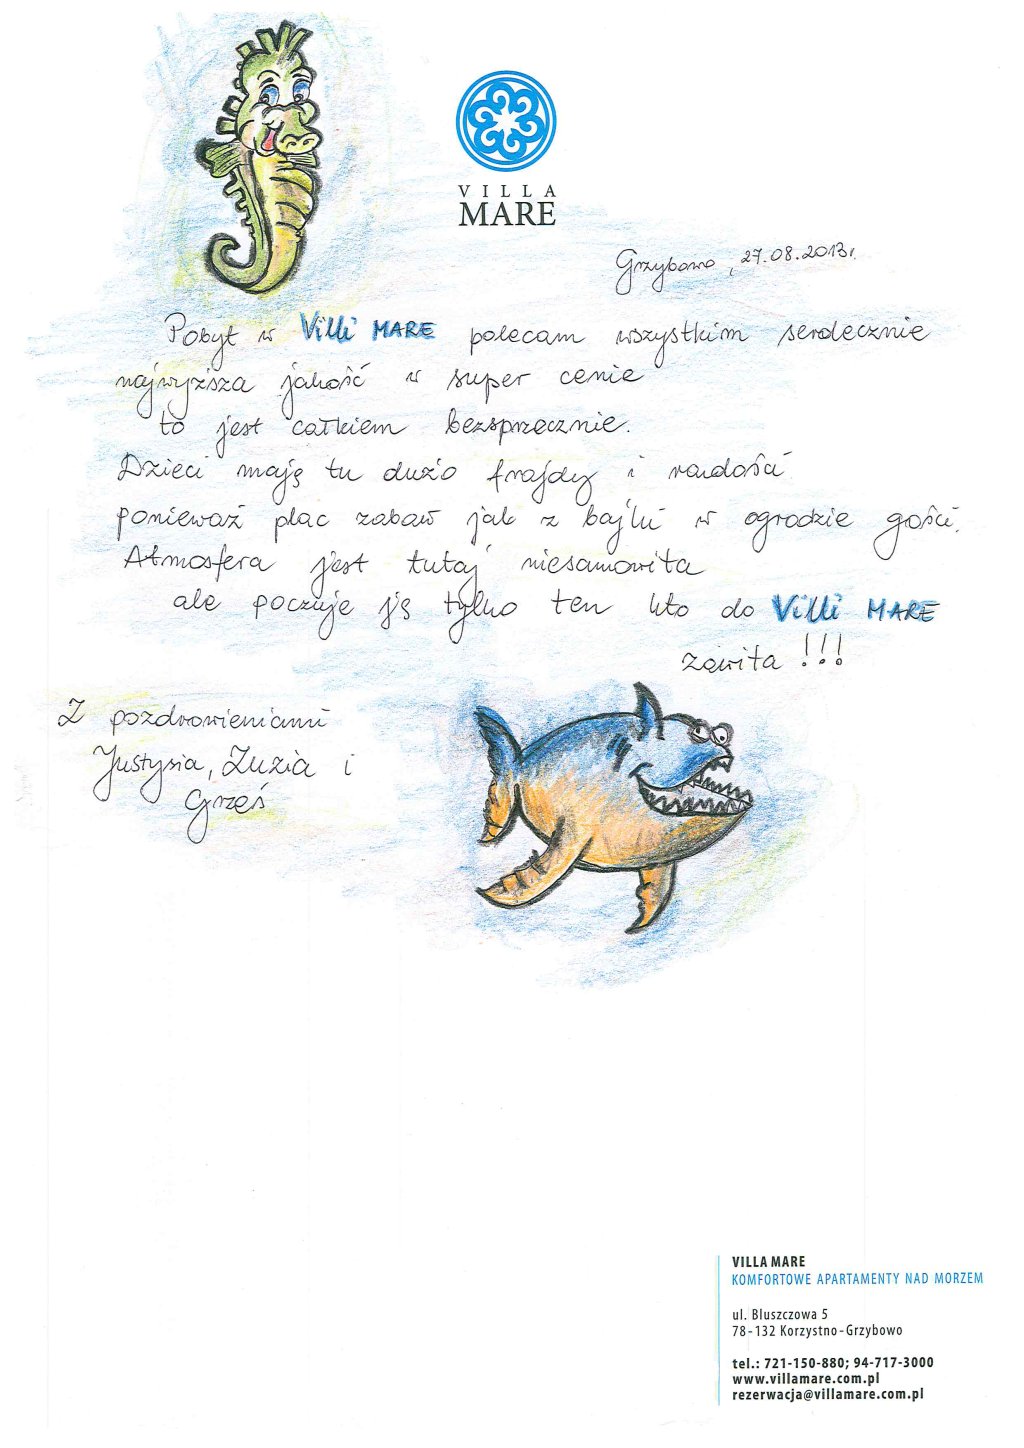 VILLA
MARE
Grzybowo, 27.08.2013r.
Pobyt w Villi MARE polecam wszystkim serdecznie
najwyższa jakość w super cenie
to jest całkiem bezsprzecznie.
Dzieci mają tu dużo frajdy i radości
ponieważ plac zabaw jak z bajki w ogrodzie gości.
Atmosfera jest tutaj niesamowita
ale poczuje ją tylko ten kto do Villi MARE
zawita !!!
Z pozdrowieniami
Justysia, Zuzia i
Grześ
VILLA MARE
KOMFORTOWE APARTAMENTY NAD MORZEM
ul. Bluszczowa 5
78-132 Korzystno-Grzybowo
tel.: 721-150-880; 94-717-3000
www.villamare.com.pl
rezerwacja@villamare.com.pl